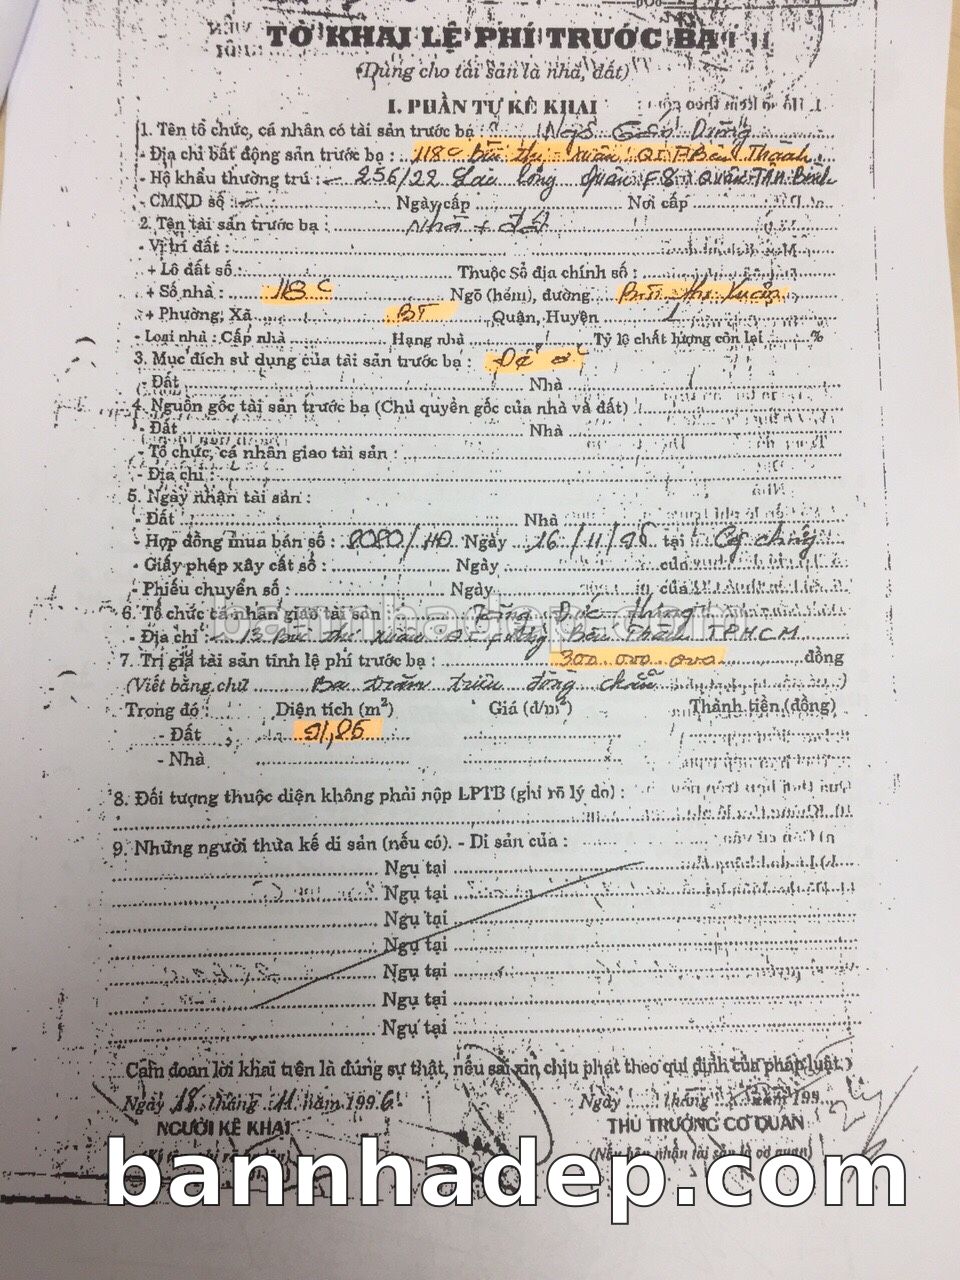 TỜ KHAI LỆ PHÍ TRƯỚC BẠ
(Dùng cho tài sản là nhà, đất)
I. PHẦN TỰ KÊ KHAI
1. Tên tổ chức, cá nhân có tài sản trước bạ : Dũng
- Địa chỉ bất động sản trước bạ : 118C Bùi thị Xuân Q1 F Bến Thành
- Hộ khẩu thường trú : 256/22 Lạc Long Quân F8 Quận Tân Bình
- CMND số Ngày cấp Nơi cấp
2. Tên tài sản trước bạ : Nhà + đất
- Vị trí đất :
+ Lô đất số: Thuộc Sổ địa chính số :
+ Số nhà : 118C Ngõ (hẻm), đường Bùi thị Xuân
+ Phường, Xã BT Quận, Huyện 1
- Loại nhà : Cấp nhà Hạng nhà Tỷ lệ chất lượng còn lại %
3. Mục đích sử dụng của tài sản trước bạ : Để ở
- Đất Nhà
4. Nguồn gốc tài sản trước bạ (Chủ quyền gốc của nhà và đất)
- Đất Nhà
- Tổ chức, cá nhân giao tài sản :
- Địa chỉ :
5. Ngày nhận tài sản :
- Đất Nhà
- Hợp đồng mua bán số : 2020/HĐ Ngày 16/11/96 tại
- Giấy phép xây cất số : Ngày của
- Phiếu chuyển số : Ngày của
6. Tổ chức cá nhân giao tài sản Đức
- Địa chỉ : Bùi thị Xuân Q1 Bến Thành TPHCM
7. Trị giá tài sản tính lệ phí trước bạ : 300.000.000 đồng
(Viết bằng chữ Ba trăm triệu đồng chẵn )
Trong đó : Diện tích (m²) Giá (đ/m²) Thành tiền (đồng)
- Đất 91,85
- Nhà
8. Đối tượng thuộc diện không phải nộp LPTB (ghi rõ lý do) :
9. Những người thừa kế di sản (nếu có). - Di sản của :
Ngụ tại
Ngụ tại
Ngụ tại
Ngụ tại
Ngụ tại
Ngụ tại
Ngụ tại
Cam đoan lời khai trên là đúng sự thật, nếu sai xin chịu phạt theo qui định của pháp luật.
Ngày 18 tháng 11 năm 1996 Ngày tháng năm 199
NGƯỜI KÊ KHAI THỦ TRƯỞNG CƠ QUAN
(Nếu bên nhận tài sản là cơ quan)
bannhadep.com